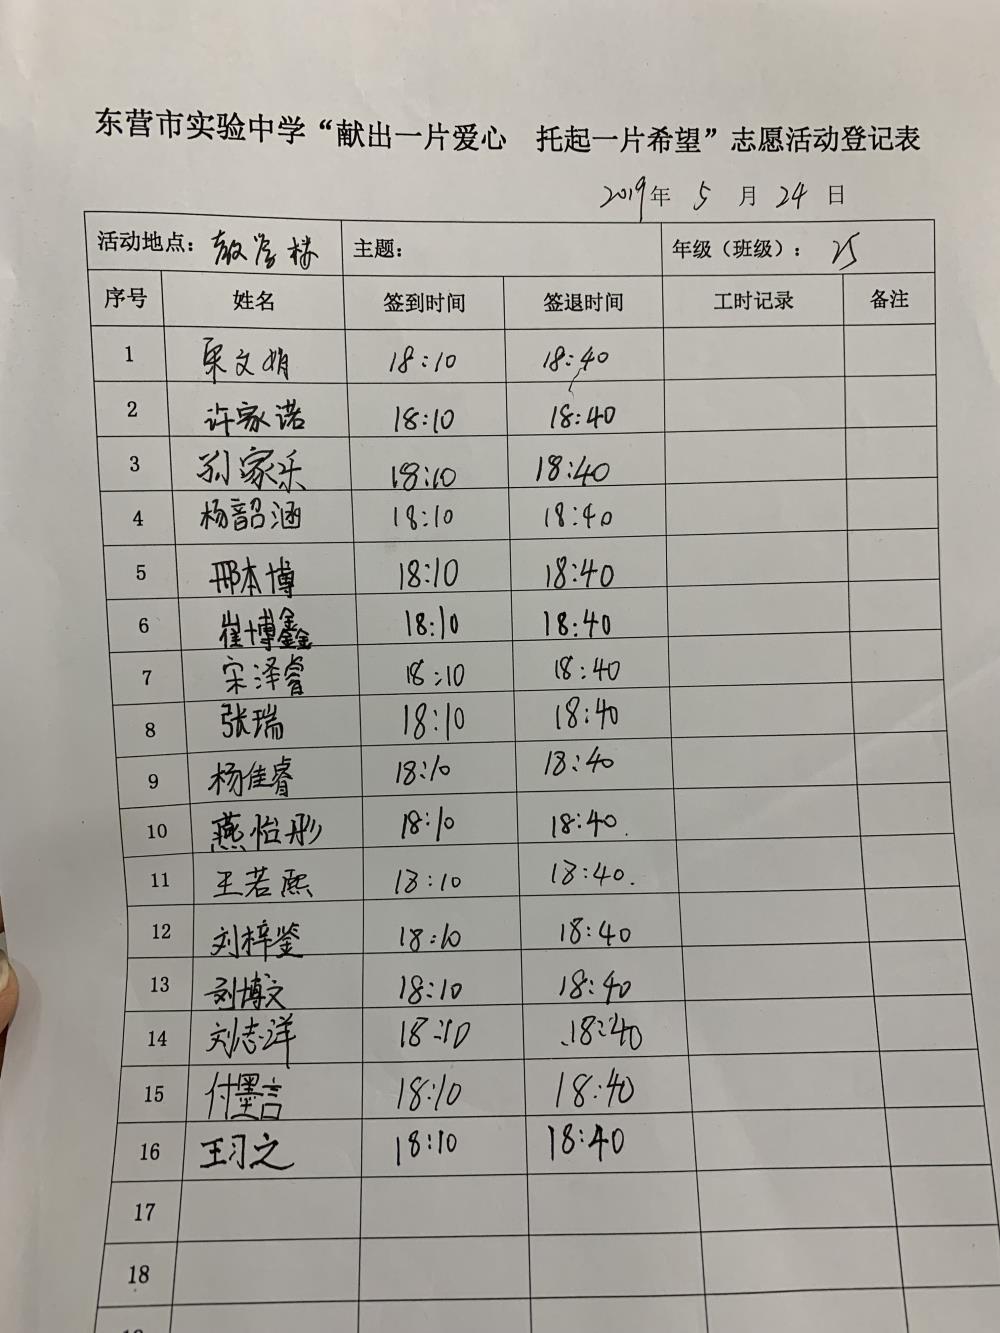 东营市实验中学“献出一片爱心 托起一片希望”志愿活动登记表
2019年 5 月 24 日
活动地点：教学楼 主题： 年级（班级）：25
序号 姓名 签到时间 签退时间 工时记录 备注
1 文娟 18:10 18:40
2 许家诺 18:10 18:40
3 孙家乐 18:10 18:40
4 杨韶涵 18:10 18:40
5 邢本博 18:10 18:40
6 崔博鑫 18:10 18:40
7 宋泽睿 18:10 18:40
8 张瑞 18:10 18:40
9 杨佳睿 18:10 18:40
10 燕怡彤 18:10 18:40
11 王若熙 18:10 18:40
12 刘梓鉴 18:10 18:40
13 刘博文 18:10 18:40
14 刘志洋 18:10 18:40
15 付墨言 18:10 18:40
16 王习之 18:10 18:40
17
18